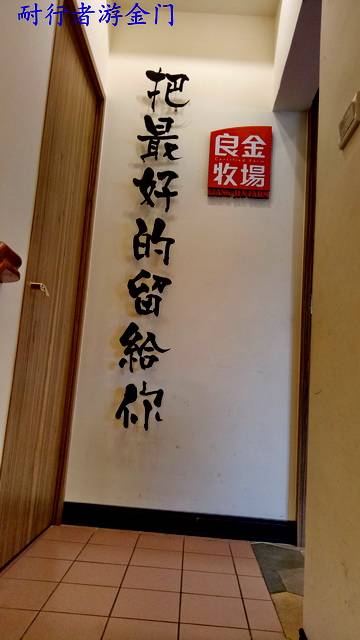 耐行者游金门
把最好的留給你
良金
Certified Farm
牧場